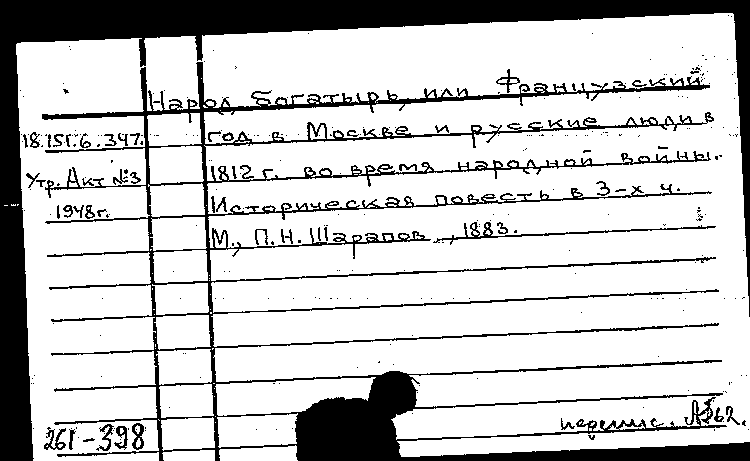 Народ богатырь, или Французский
18.151.6.347. год в Москве и русские люди в
Утр. Акт №3 1812 г. во время народной войны.
1948 г. Историческая повесть в 3-х ч.
М., П.Н. Шарапов, 1883.
261-398
перепис.